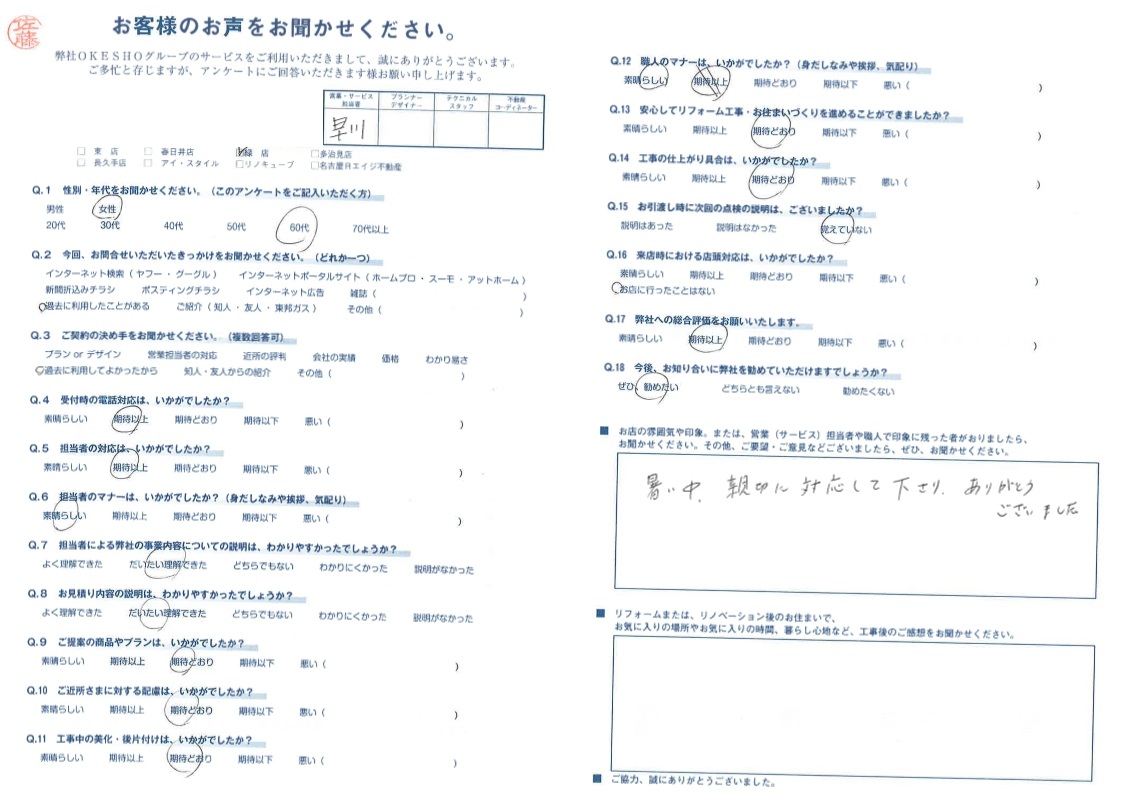 佐藤
お客様のお声をお聞かせください。
弊社OKESHOグループのサービスをご利用いただきまして、誠にありがとうございます。
ご多忙と存じますが、アンケートにご回答いただきます様お願い申し上げます。
営業・サービス担当者 プランナーデザイナー テクニカルスタッフ 不動産コーディネーター
早川
□ 東 店 □ 春日井店 ☑緑 店 □多治見店
□ 長久手店 □ アイ・スタイル □リノキューブ □名古屋Rエイジ不動産
Q.1 性別・年代をお聞かせください。（このアンケートをご記入いただく方）
男性 女性
20代 30代 40代 50代 60代 70代以上
Q.2 今回、お問合せいただいたきっかけをお聞かせください。（どれか一つ）
インターネット検索（ ヤフー ・ グーグル ） インターネットポータルサイト（ ホームプロ ・ スーモ ・ アットホーム ）
新聞折込みチラシ ポスティングチラシ インターネット広告 雑誌（ ）
過去に利用したことがある ご紹介（ 知人 ・ 友人 ・ 東邦ガス ） その他（ ）
Q.3 ご契約の決め手をお聞かせください。（複数回答可）
プラン or デザイン 営業担当者の対応 近所の評判 会社の実績 価格 わかり易さ
過去に利用してよかったから 知人・友人からの紹介 その他（ ）
Q.4 受付時の電話対応は、いかがでしたか？
素晴らしい 期待以上 期待どおり 期待以下 悪い（ ）
Q.5 担当者の対応は、いかがでしたか？
素晴らしい 期待以上 期待どおり 期待以下 悪い（ ）
Q.6 担当者のマナーは、いかがでしたか？（身だしなみや挨拶、気配り）
素晴らしい 期待以上 期待どおり 期待以下 悪い（ ）
Q.7 担当者による弊社の事業内容についての説明は、わかりやすかったでしょうか？
よく理解できた だいたい理解できた どちらでもない わかりにくかった 説明がなかった
Q.8 お見積り内容の説明は、わかりやすかったでしょうか？
よく理解できた だいたい理解できた どちらでもない わかりにくかった 説明がなかった
Q.9 ご提案の商品やプランは、いかがでしたか？
素晴らしい 期待以上 期待どおり 期待以下 悪い（ ）
Q.10 ご近所さまに対する配慮は、いかがでしたか？
素晴らしい 期待以上 期待どおり 期待以下 悪い（ ）
Q.11 工事中の美化・後片付けは、いかがでしたか？
素晴らしい 期待以上 期待どおり 期待以下 悪い（ ）
Q.12 職人のマナーは、いかがでしたか？（身だしなみや挨拶、気配り）
素晴らしい 期待以上 期待どおり 期待以下 悪い（ ）
Q.13 安心してリフォーム工事・お住まいづくりを進めることができましたか？
素晴らしい 期待以上 期待どおり 期待以下 悪い（ ）
Q.14 工事の仕上がり具合は、いかがでしたか？
素晴らしい 期待以上 期待どおり 期待以下 悪い（ ）
Q.15 お引渡し時に次回の点検の説明は、ございましたか？
説明はあった 説明はなかった 覚えていない
Q.16 来店時における店頭対応は、いかがでしたか？
素晴らしい 期待以上 期待どおり 期待以下 悪い（ ）
お店に行ったことはない
Q.17 弊社への総合評価をお願いいたします。
素晴らしい 期待以上 期待どおり 期待以下 悪い（ ）
Q.18 今後、お知り合いに弊社を勧めていただけますでしょうか？
ぜひ、勧めたい どちらとも言えない 勧めたくない
■ お店の雰囲気や印象。または、営業（サービス）担当者や職人で印象に残った者がおりましたら、
お聞かせください。その他、ご要望・ご意見などございましたら、ぜひ、お聞かせください。
暑い中、親切に対応して下さり、ありがとう
ございました
■ リフォームまたは、リノベーション後のお住まいで、
お気に入りの場所やお気に入りの時間、暮らし心地など、工事後のご感想をお聞かせください。
■ ご協力、誠にありがとうございました。